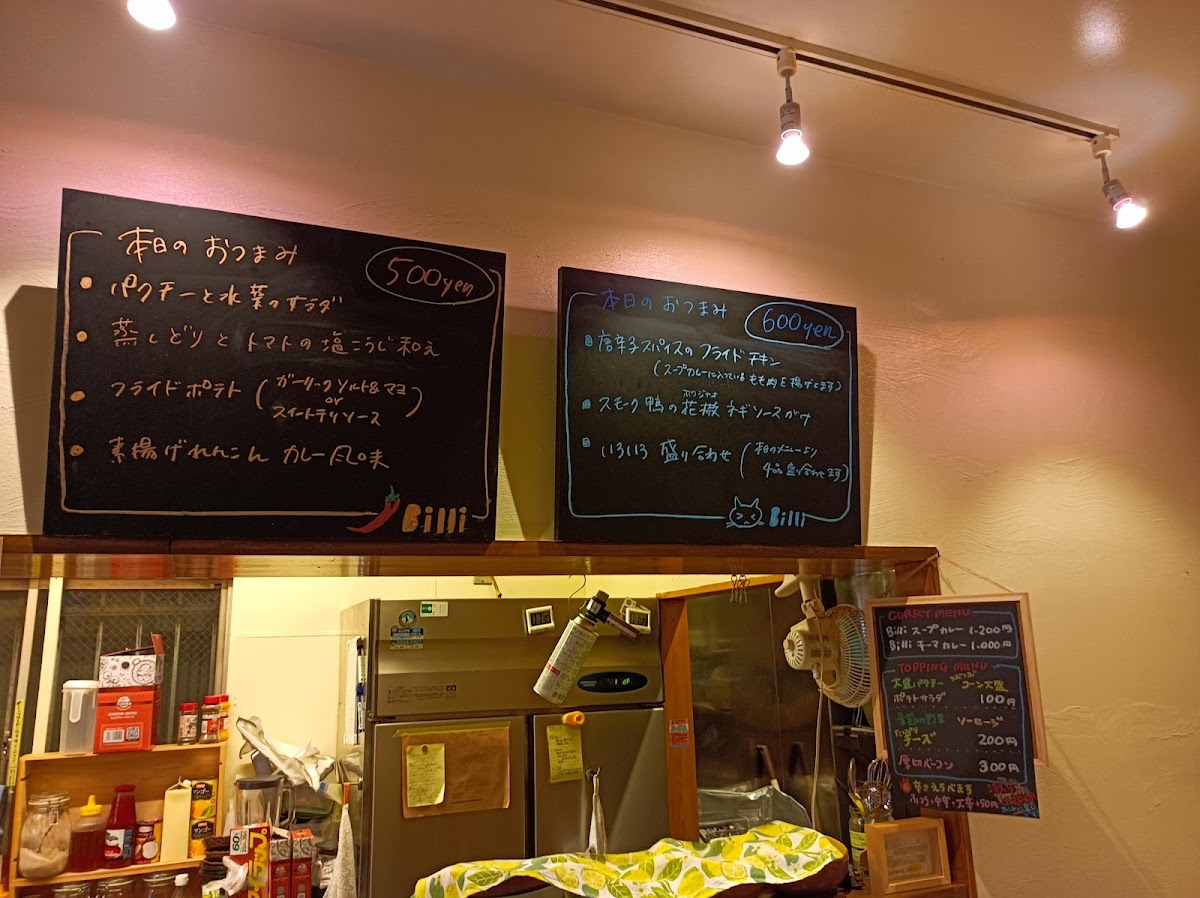 本日の おつまみ
500yen
パクチーと水菜のサラダ
蒸しどりとトマトの塩こうじ和え
フライドポテト (ガーリックソルト&マヨ
or
スイートチリソース)
素揚げれんこん カレー風味
Billi
本日の おつまみ
600yen
唐辛子スパイスの フライドチキン
(スープカレーに入っている もも肉を揚げてます)
スモーク鴨の花椒 ネギソースがけ
ホワジャオ
いろいろ 盛り合わせ (本日のメニューより
4品盛り合わせます)
Billi
CURRY MENU
Billi スープカレー 1.200円
Billi キーマカレー 1.000円
TOPPING MENU
大盛パクチー コーン大盛
ポテトサラダ 100円
季節の野菜 ソーセージ
チーズ 200円
厚切ベーコン 300円
辛さえらべます
+50円
マンゴー
マンゴー